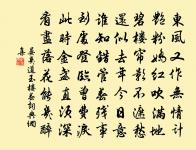 東風又作無情計
艷粉嬌紅吹滿地
碧樓帘影不遮愁
還似去年今日意
誰知錯管春殘事
到處登臨曾費淚
此時金盞直須深
看盡落花能幾醉
晏幾道玉樓春詞典網
集